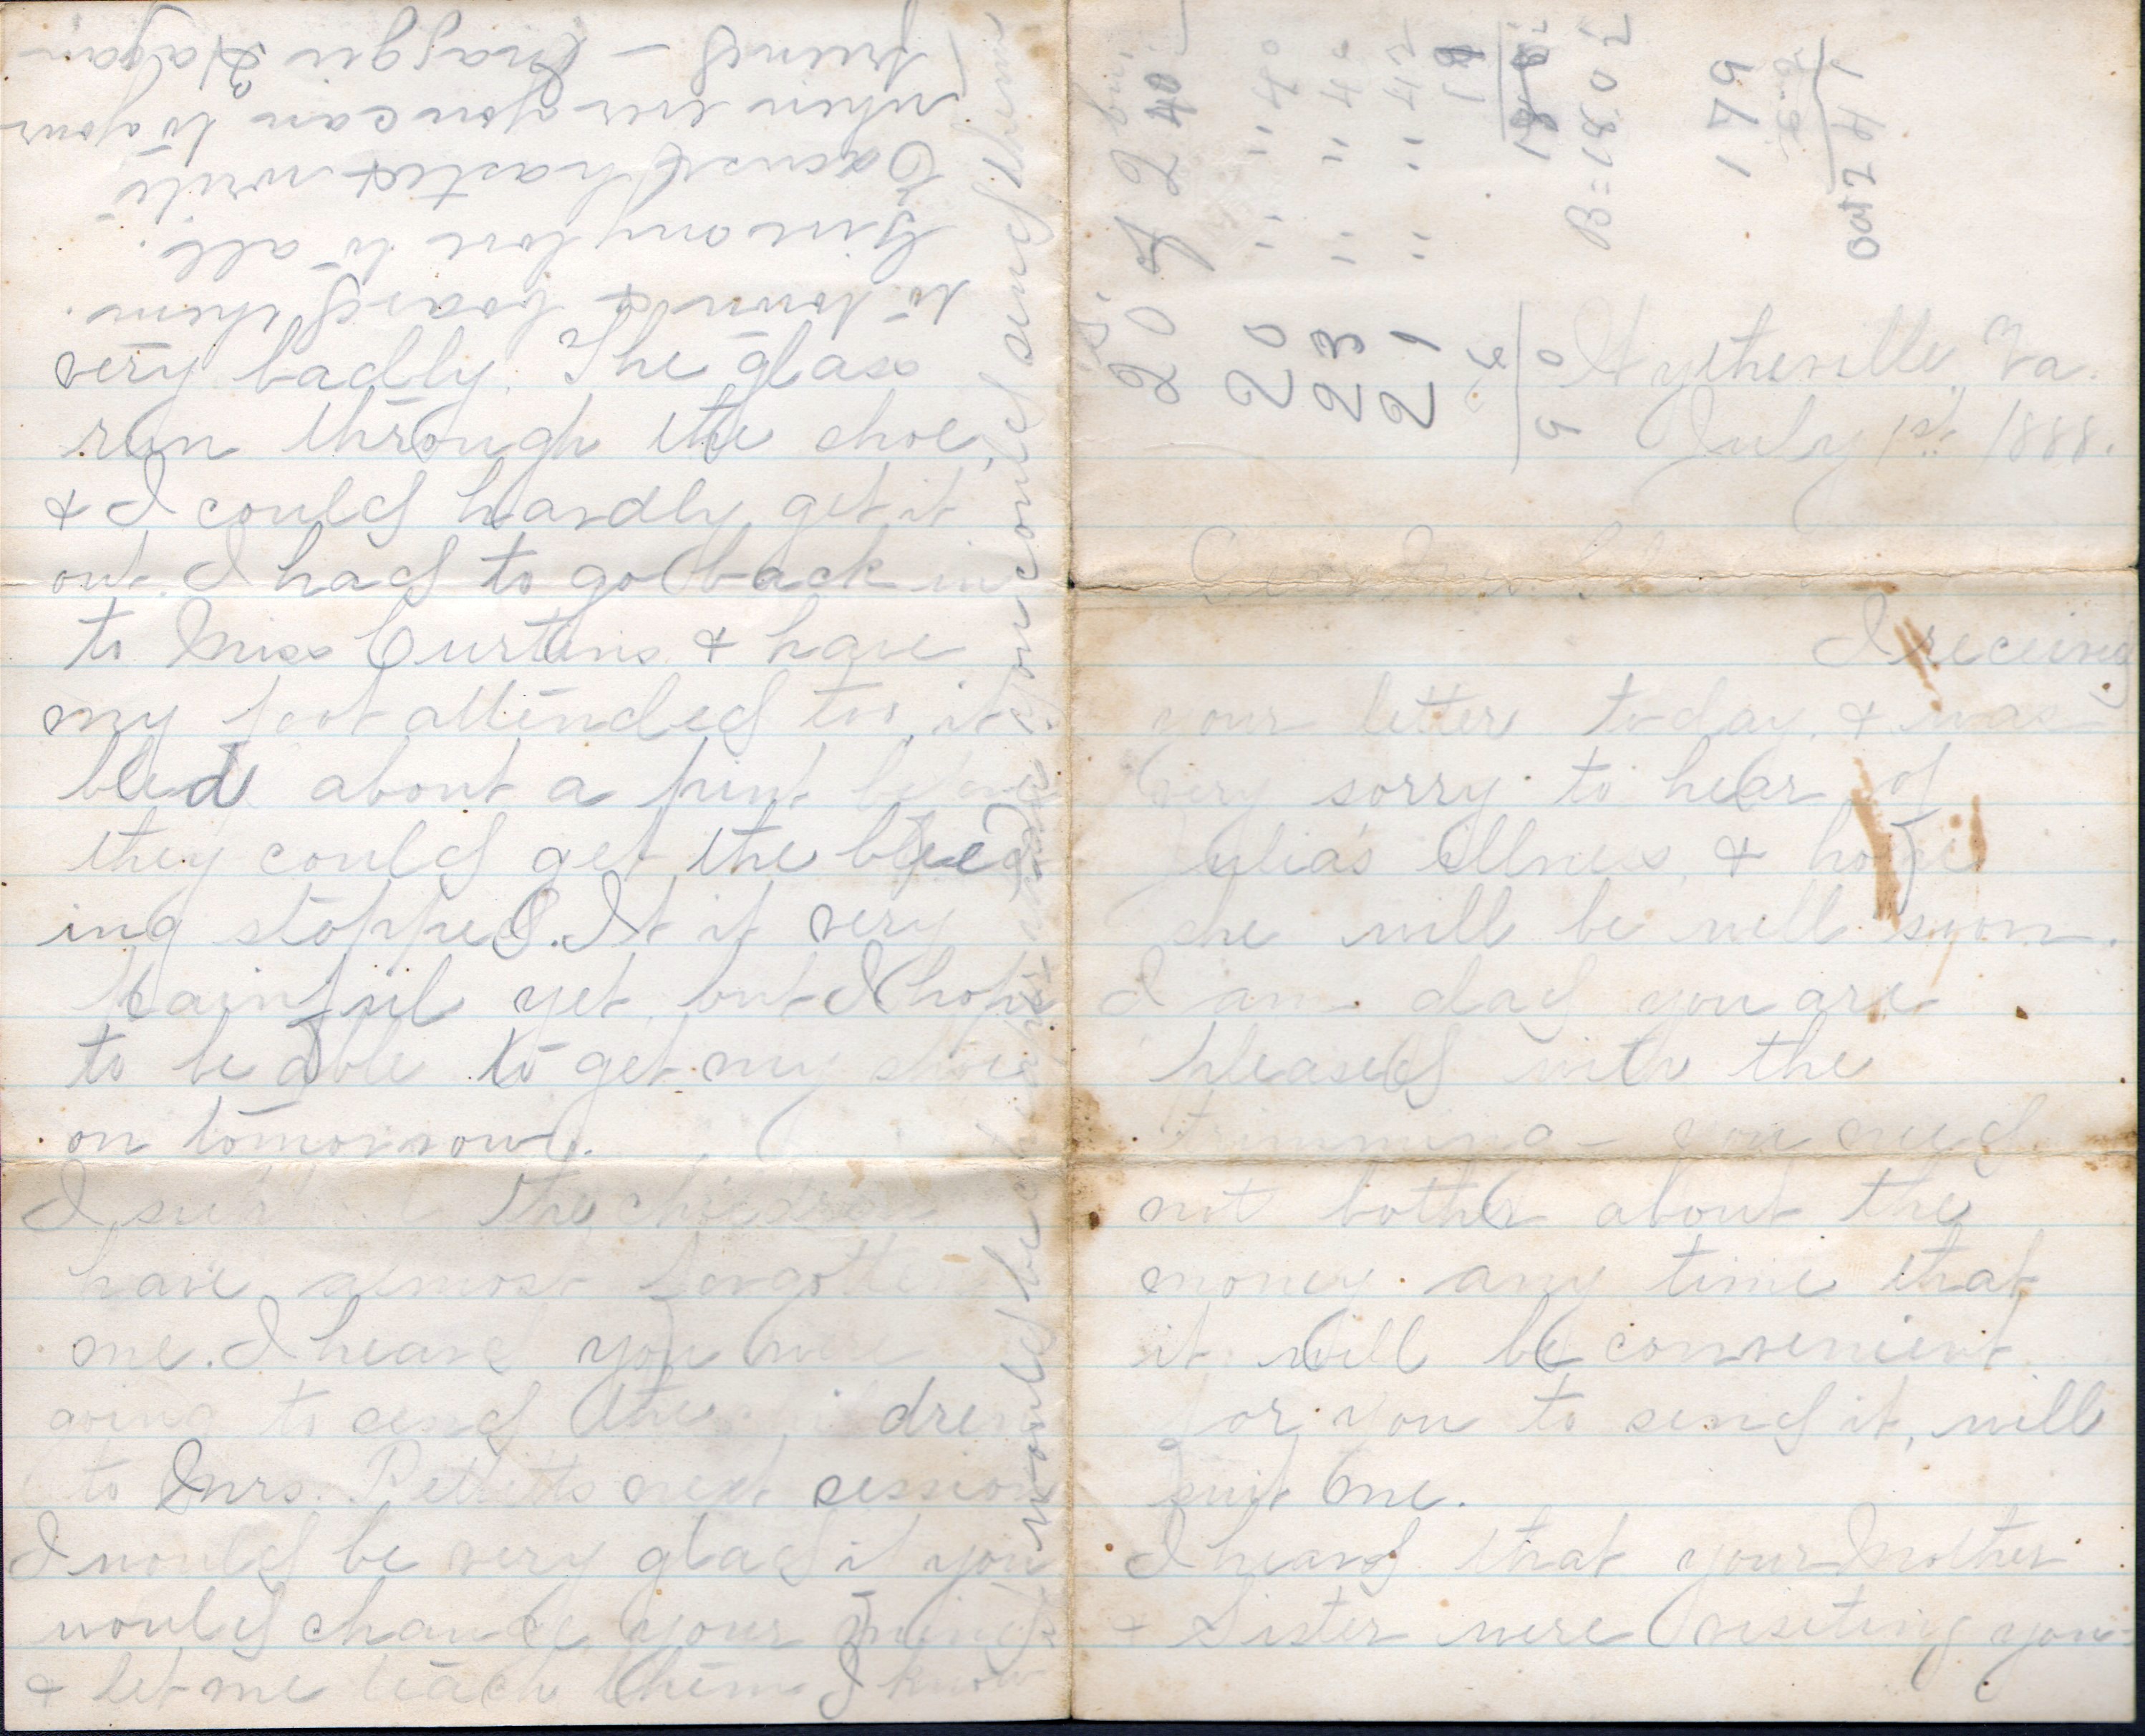 Wytheville, Va.
July 1st 1888.
I received
your letter today, & was
very sorry to hear of
Julia's illness, & hope
she will be well soon.
I am glad you are
pleased with the
trimming - you need
not bother about the
money. any time that
it will be convenient
for you to send it, will
suit me.
I heard that your Mother
& Sister were visiting you
very badly. The glass
run through the shoe,
& I could hardly get it
out. I had to go back in
to Miss Curtins & have
my foot attended too, it
bled about a pint before
they could get the bleed
ing stopped. It it very
painful yet, but I hope
to be able to get my shoe
on tomorrow.
I the children
have almost forgotten
me. I heard you were
going to send the children
to Mrs. Pettitts next session
I would be very glad if you
would change your mind
& let me teach them I know
would be you could send them
to town & board them.
Give my love to all.
Excuse haste & write
when ever you can to your
friend - Maggie Hagan
20 of 2 40
20 " " 40
23 " " 44
21 " " 42
18
181
B = 1802
179